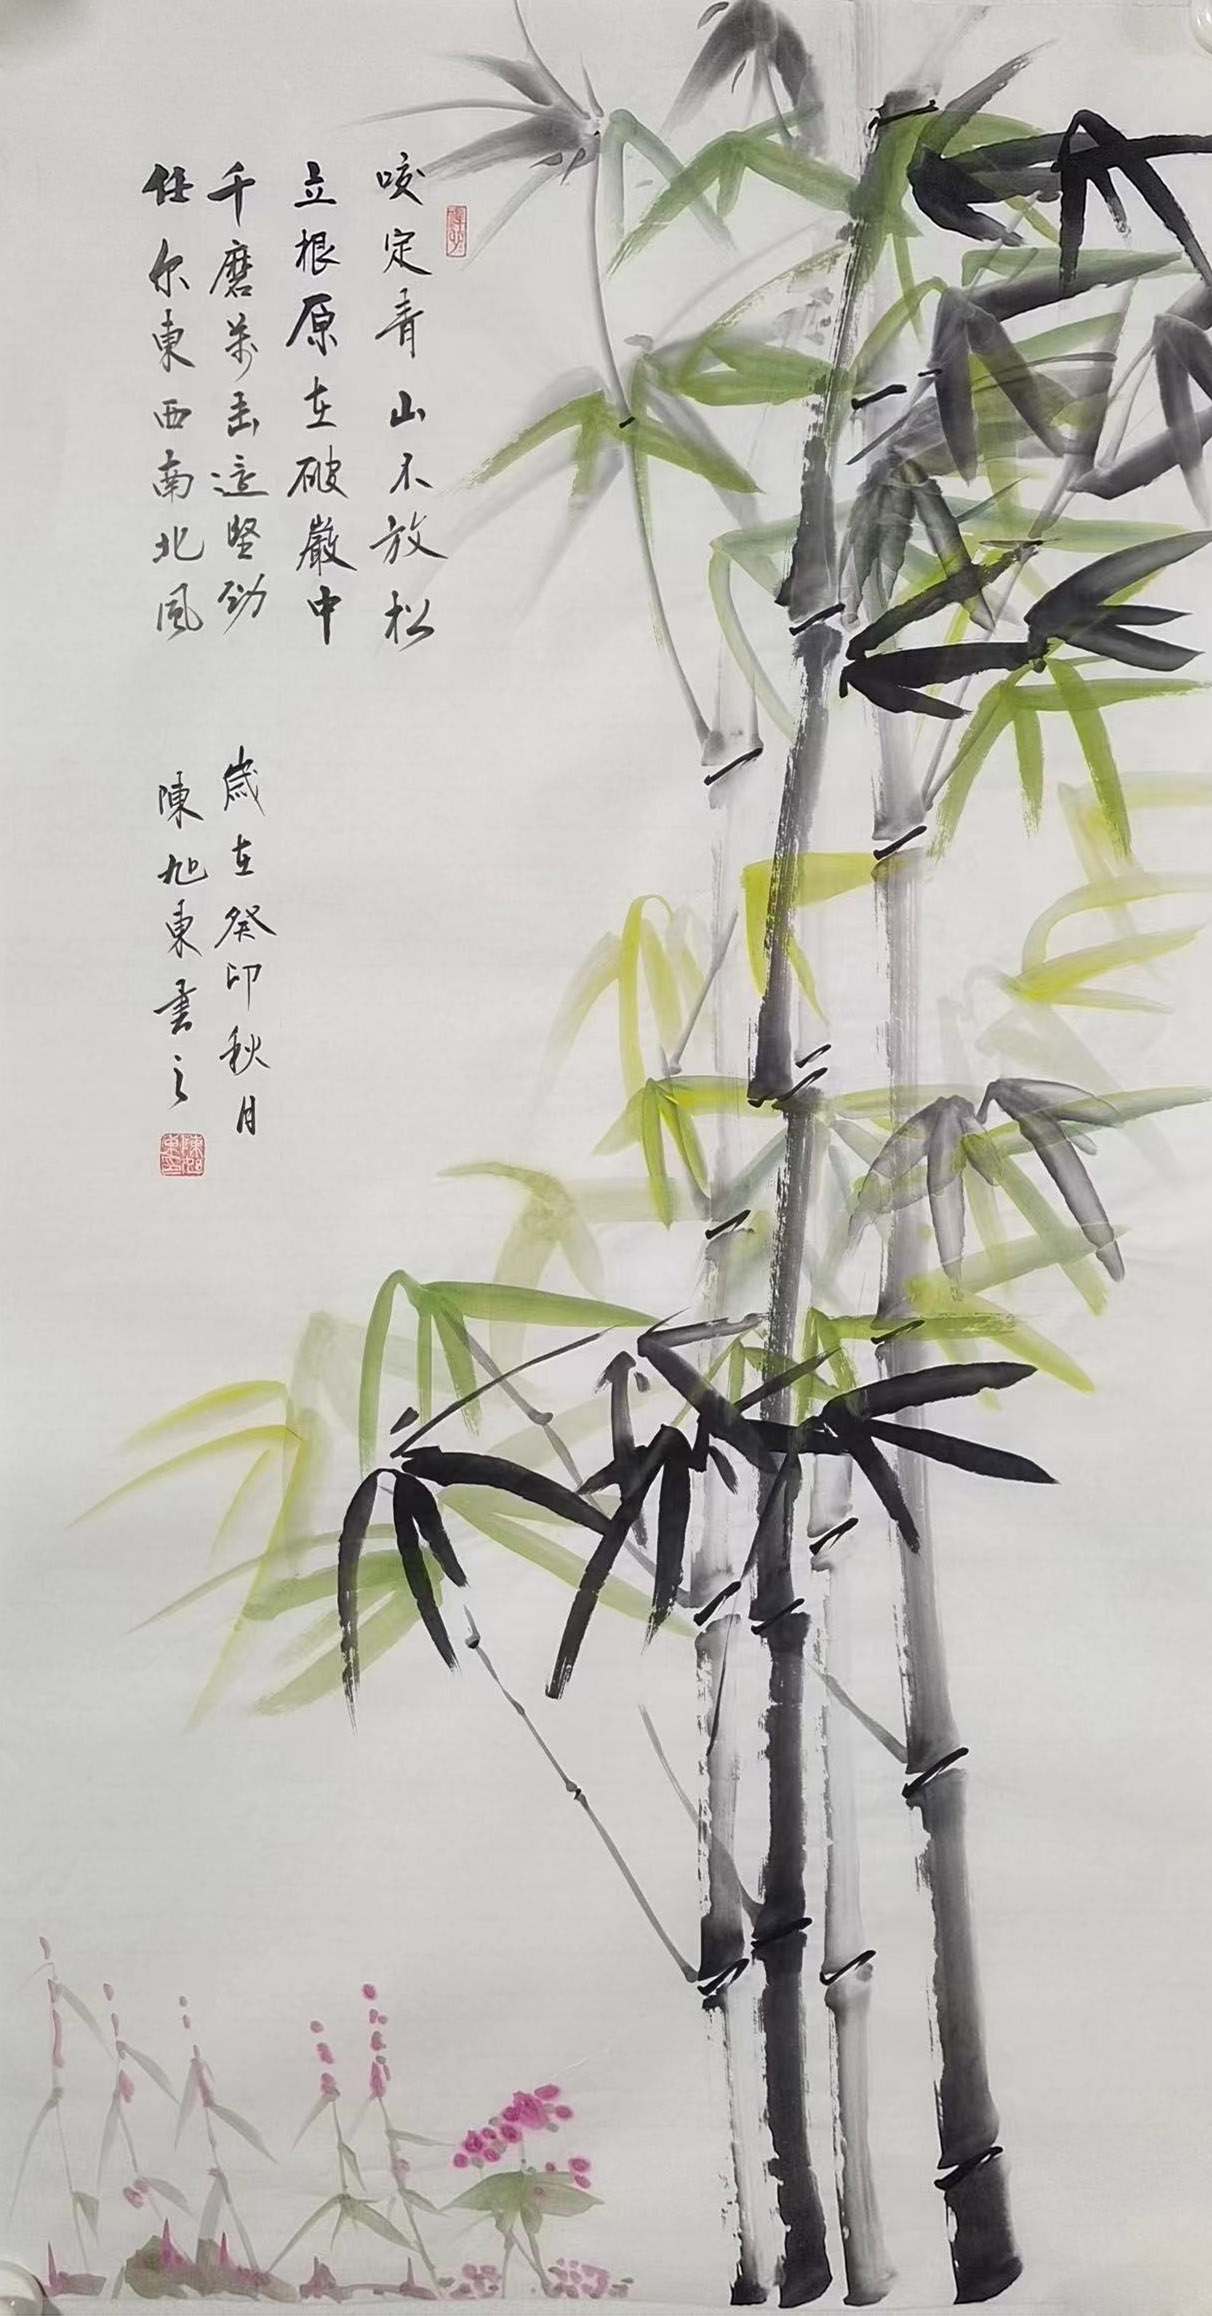 咬定青山不放松
立根原在破巖中
千磨萬击還堅劲
任尔東西南北風
歲在癸卯秋月
陳旭東畫之